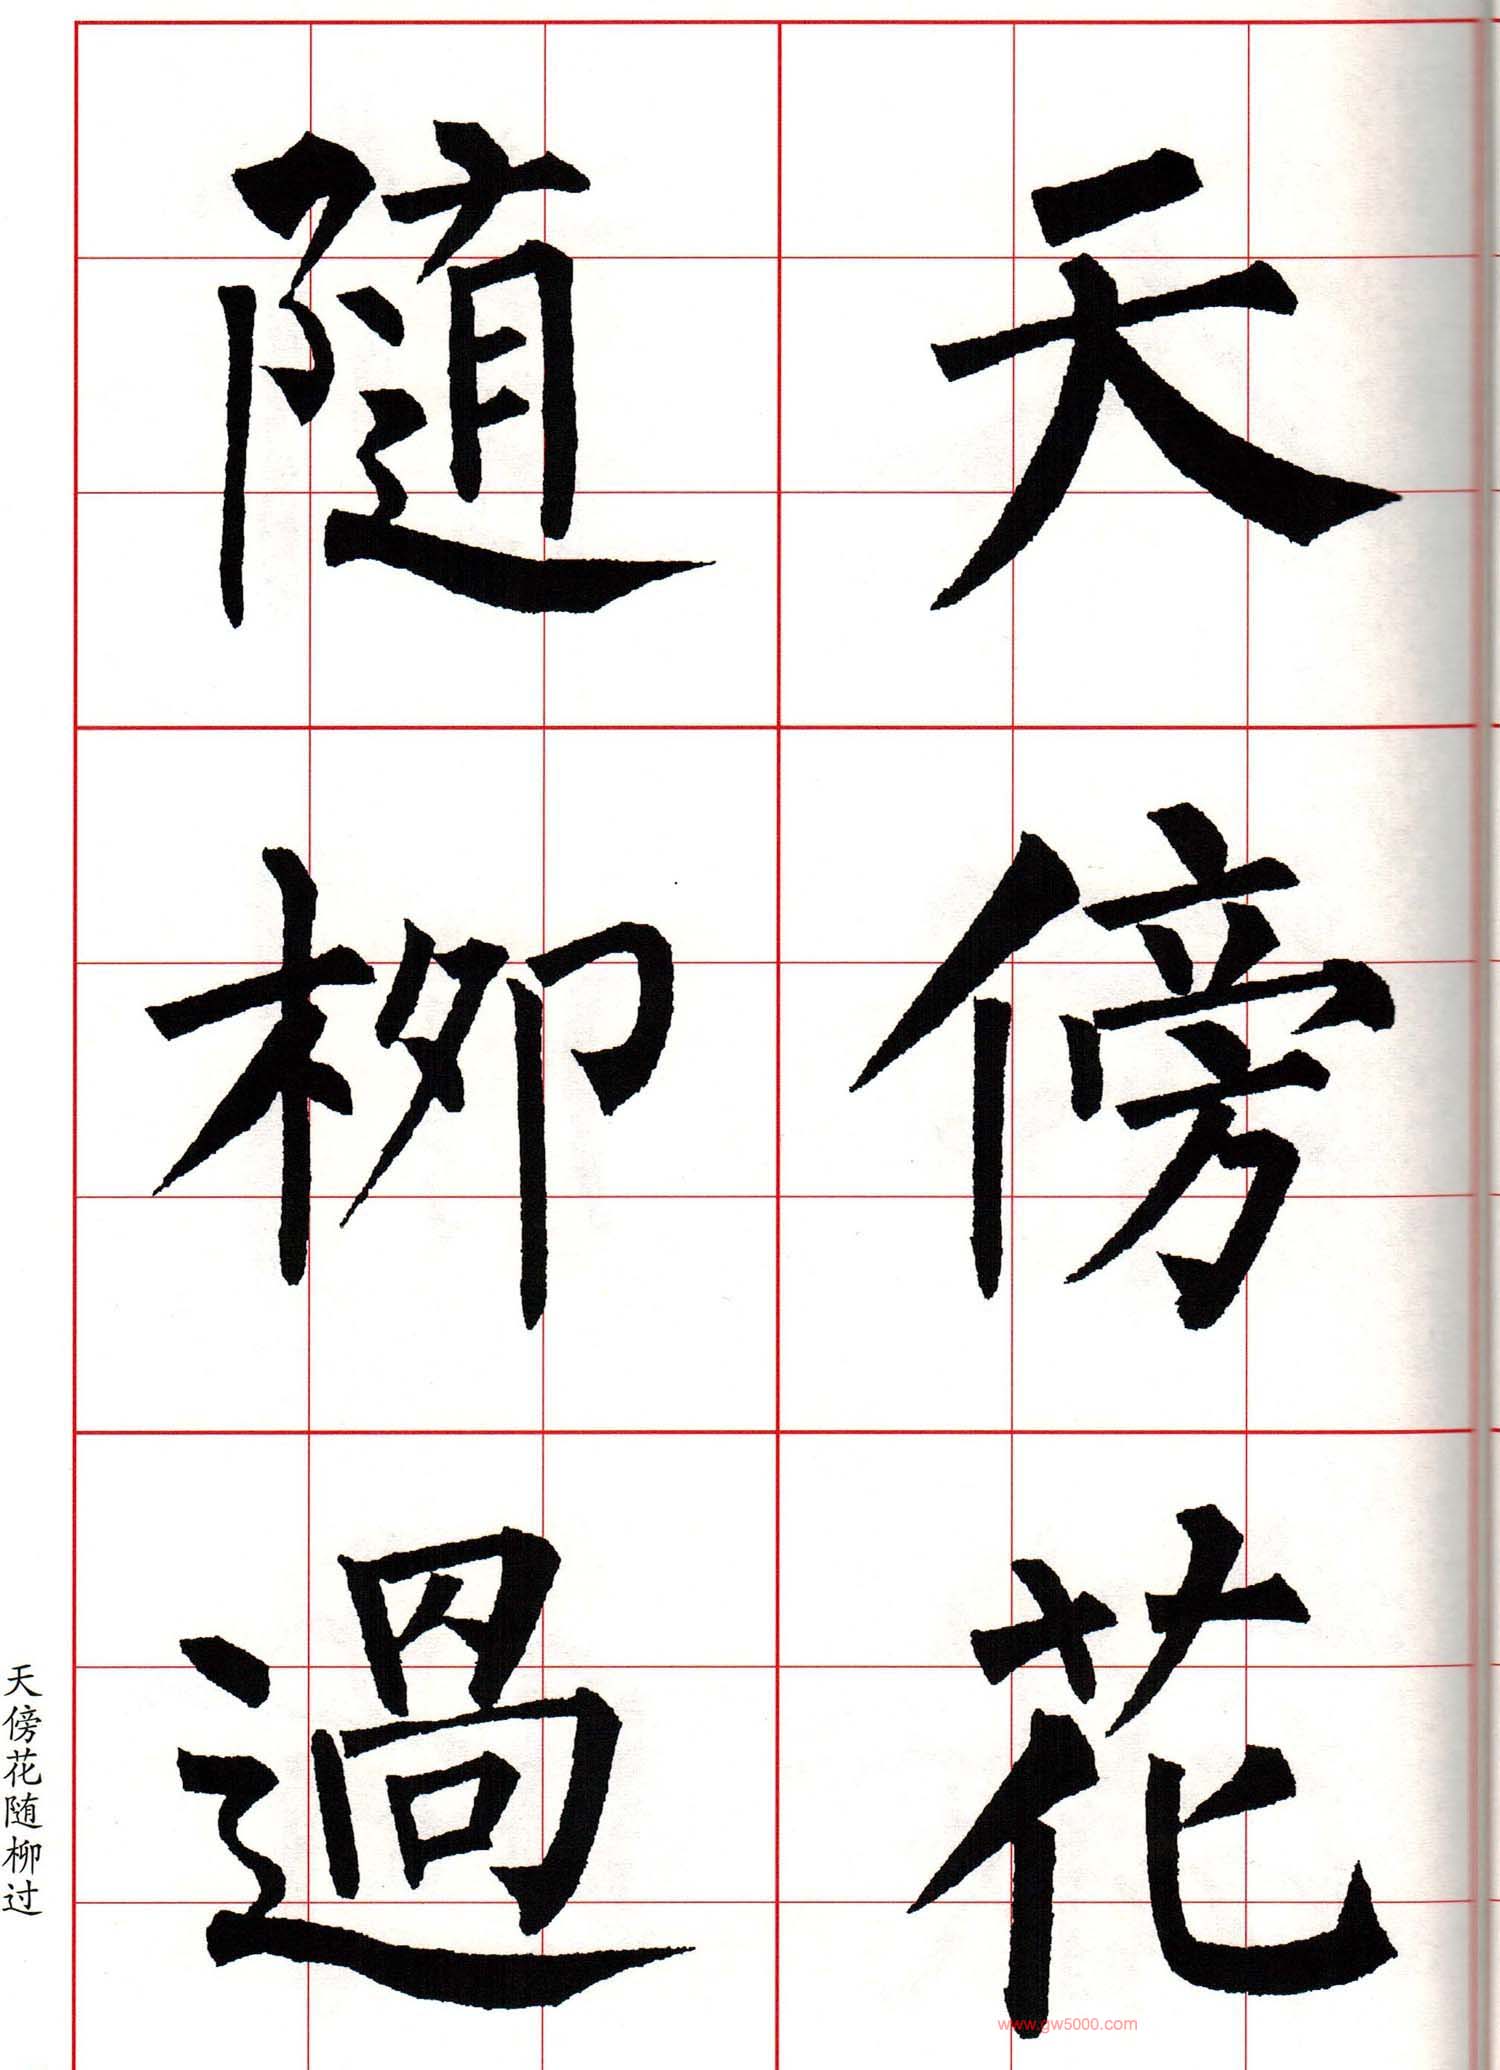 天傍花
随柳過
天傍花随柳过
www.gw5000.com